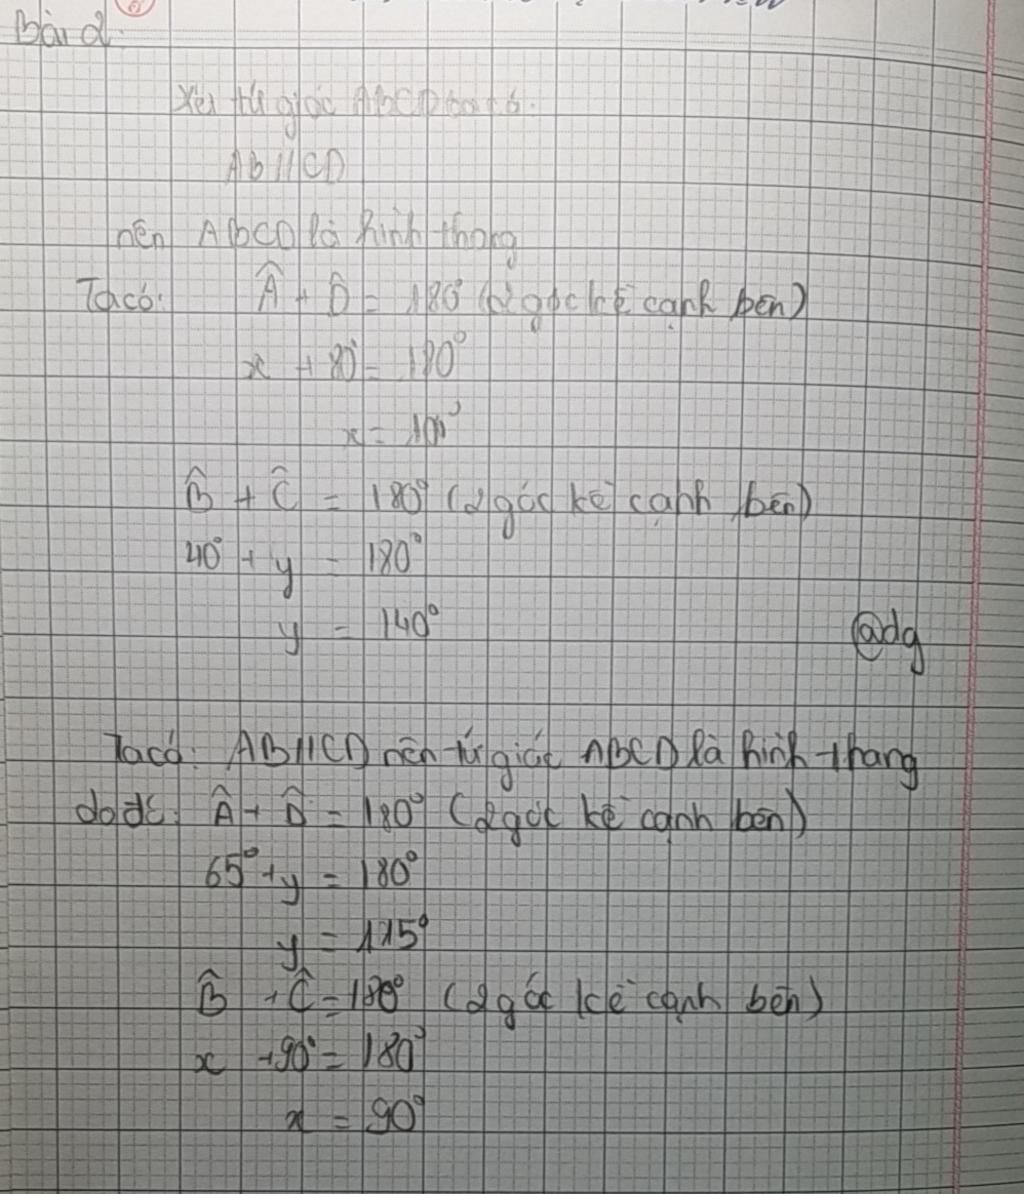 Bài 2:
Xét tứ giác ABCD có:
AB//CD
nên ABCD là hình thang
Ta có: Â + D̂ = 180° (2 góc kề cạnh bên)
x + 80° = 180°
x = 100°
B̂ + Ĉ = 180° (2 góc kề cạnh bên)
40° + y = 180°
y = 140°
@dg
Ta có: AB//CD nên tứ giác ABCD là hình thang
do đó: Â + D̂ = 180° (2 góc kề cạnh bên)
65° + y = 180°
y = 115°
B̂ + Ĉ = 180° (2 góc kề cạnh bên)
x + 90° = 180°
x = 90°